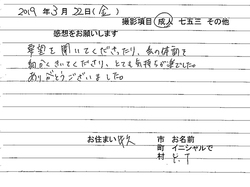 2019年3月22日(金)
撮影項目 成人 七五三 その他
感想をお願いします
希望を聞いてくださったり、私の体調を
細かくきいてくださり、とても気持ちが楽でした。
ありがとうございました。
お住まい 市 お名前
町 イニシャルで
村 K.T